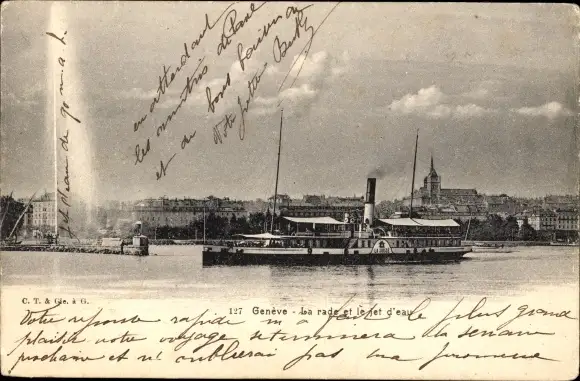 en attendant
les minutes de Paul
et de bons baisers
Votre petite Berthe
C. T. & Cie. à G.
127 Genève - La rade et le jet d'eau
Votre reponse rapide m'a fait le plus grand
plaisir votre voyage se terminera la semaine
prochaine et n'oublierai pas ma promesse